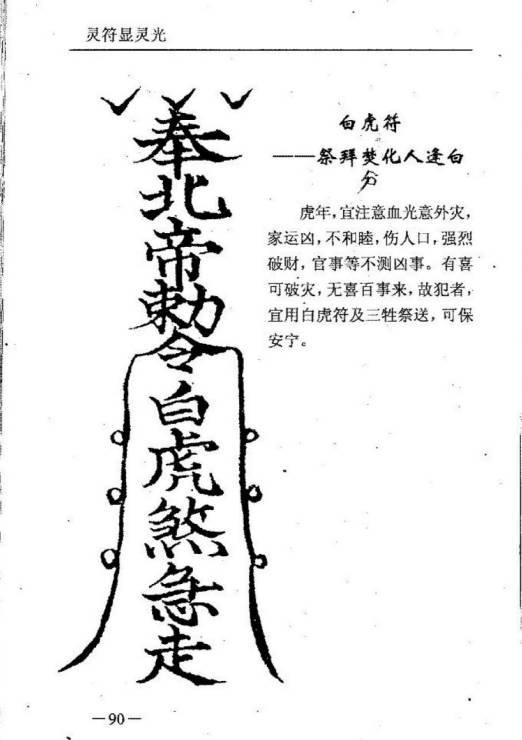 灵符显灵光
奉北帝敕令白虎煞急走
白虎符
——祭拜焚化人逢白
虎年，宜注意血光意外灾，
家运凶，不和睦，伤人口，强烈
破财，官事等不测凶事。有喜
可破灾，无喜百事来，故犯者，
宜用白虎符及三牲祭送，可保
安宁。
—90—